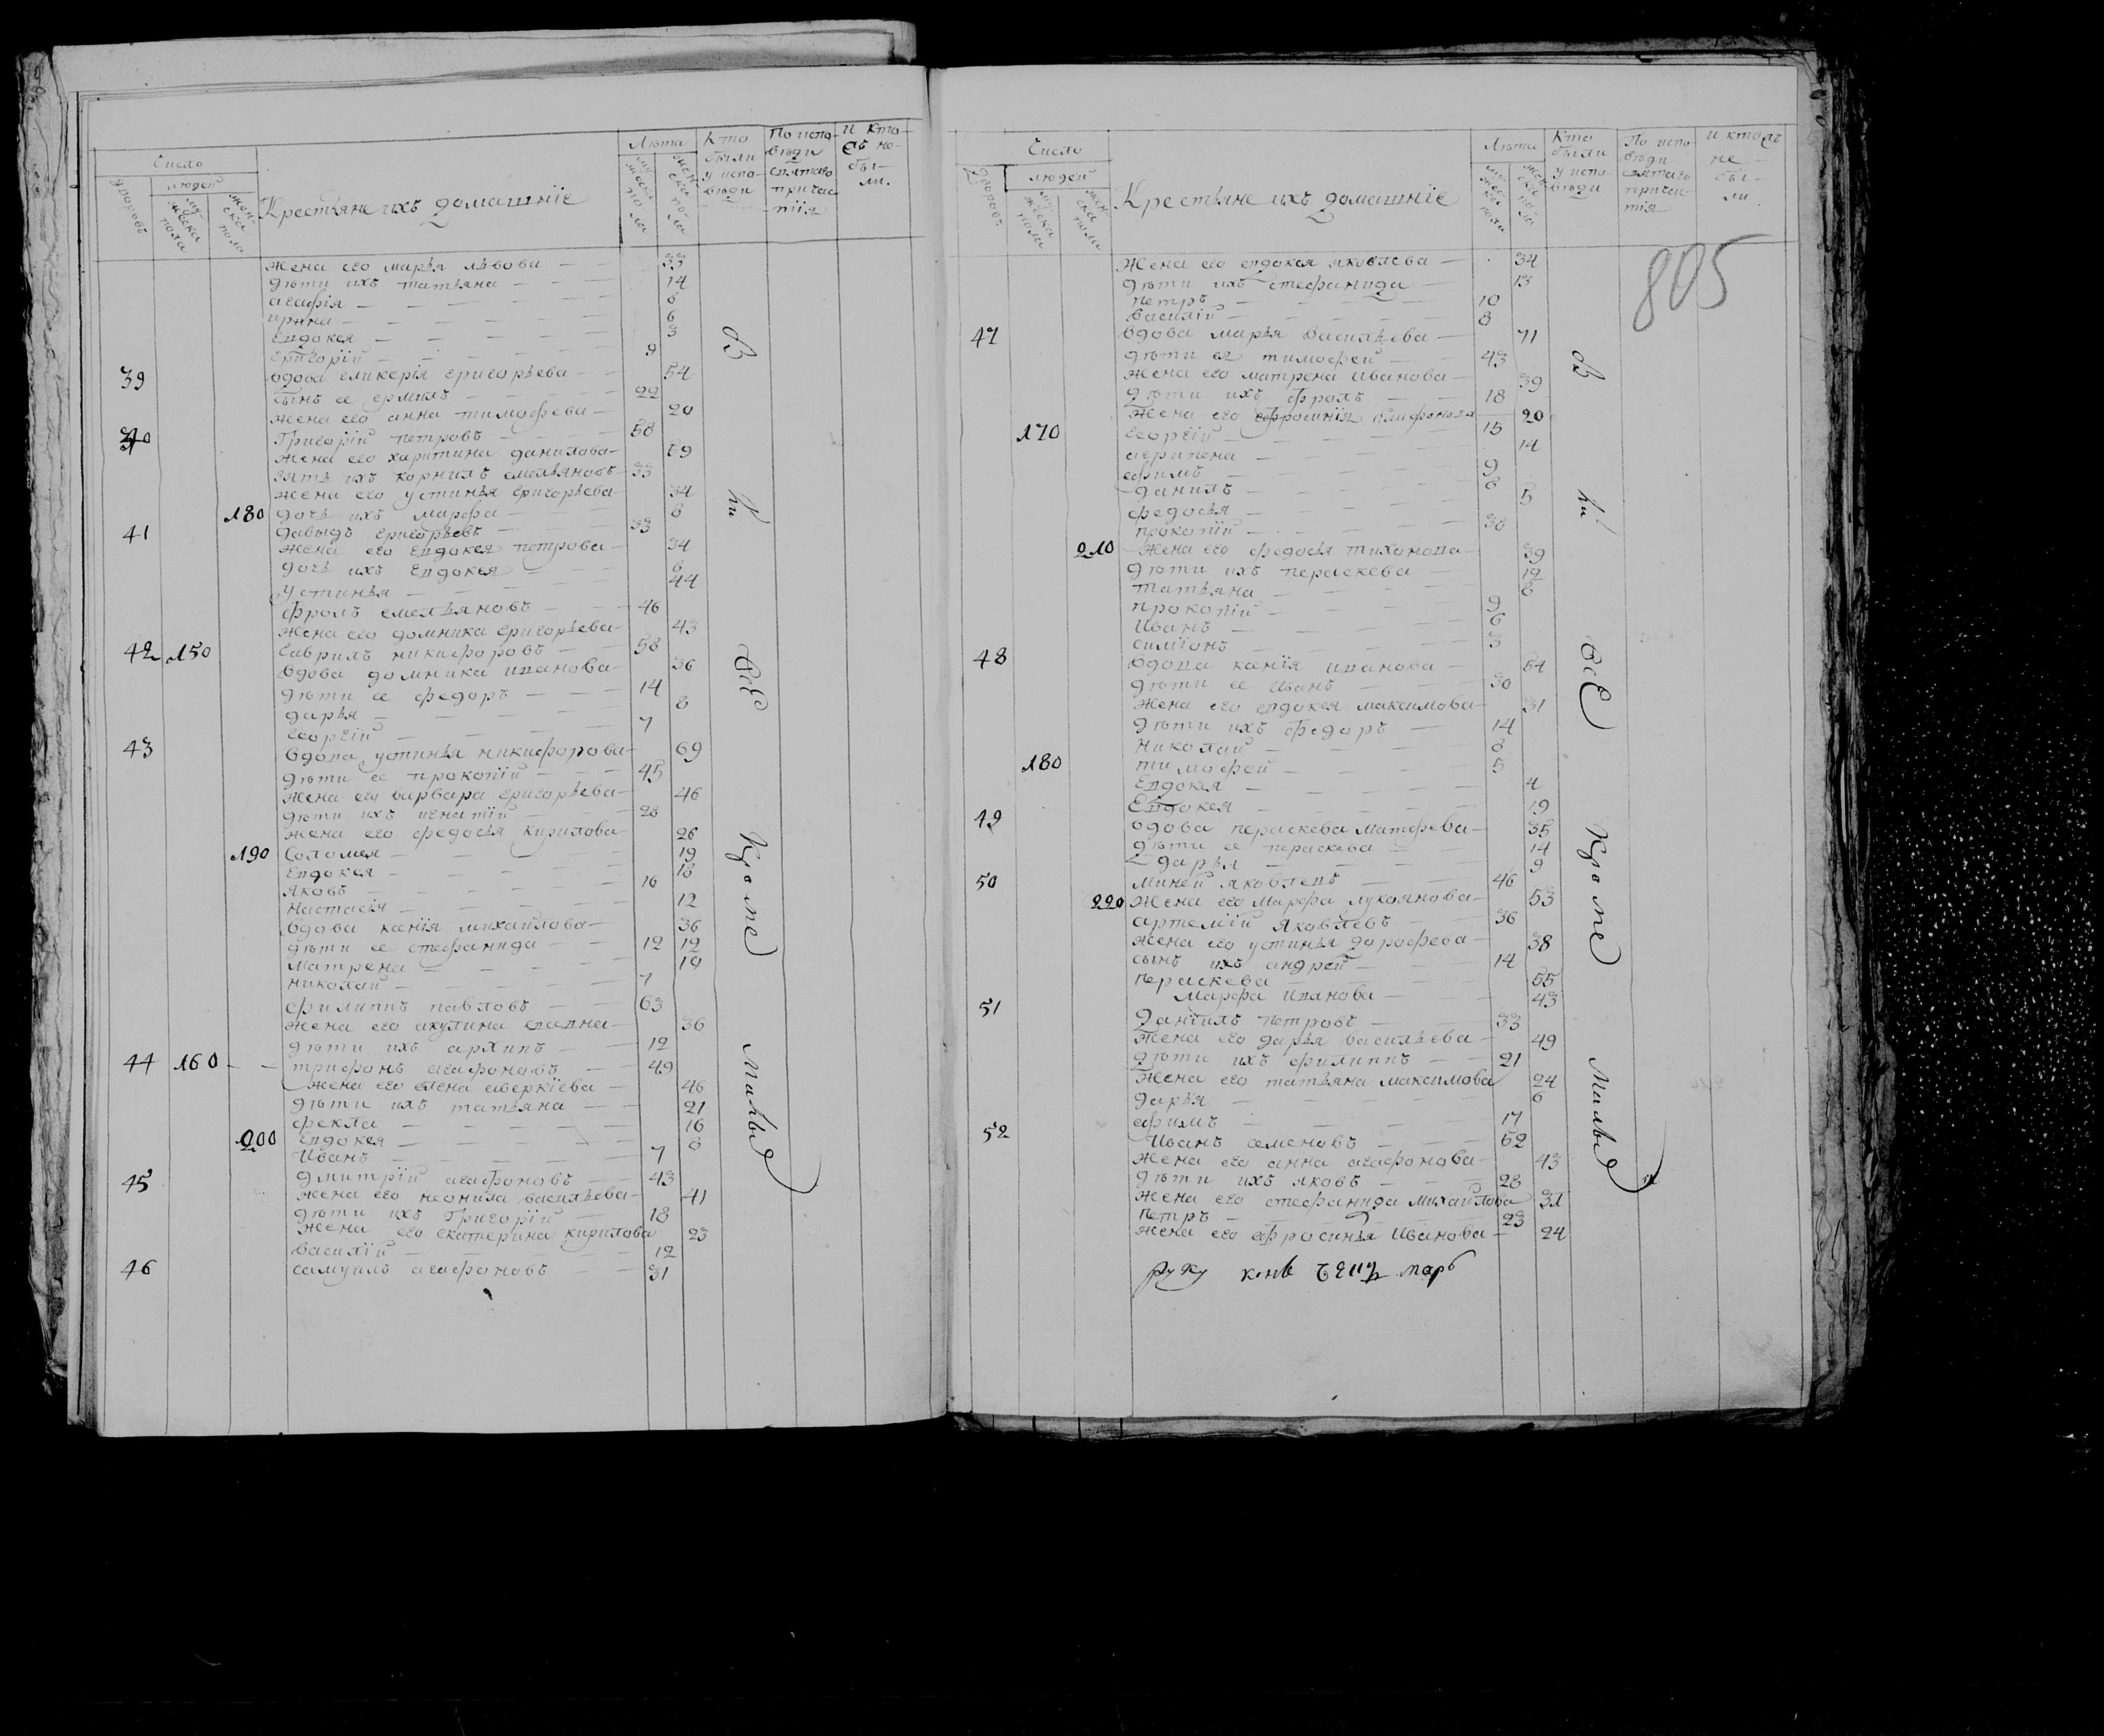 Число
Дворовъ
людей
мужеска пола
женска пола
Крестьяне ихъ домашнїе
Лѣта
мужеска пола
женска пола
Кто были у исповѣди
По исповѣди святаго причастїя
И кто не были.
жена его марья львова — 33
дѣти ихъ татьяна — 14
агафїя — 8
ирина — 6
Евдокея — 3
Григорїй — 9
39 вдова гликерїя григорьева — 54
сынъ ее ермилъ — 22
жена его анна тимофева — 20
40 Григорїй петровъ — 58
жена его харитина данилова — 59
зять ихъ корнилъ емельяновъ — 33
жена его устинья григорьева — 34
180 дочь ихъ марфа — 8
41 давыдъ григорьевъ 33
жена его Евдокея петрова — 34
дочь ихъ Евдокея — 6
устинья — 44
фролъ емельяновъ — 46
жена его домника григорьева — 43
42 150 гаврилъ никифоровъ — 58
вдова домника иванова — 36
дѣти ее федоръ — 14
дарья — 8
георгїй — 7
43 вдова устинья никифорова — 69
дѣти ее прокопїй — 45
жена его варвара григорьева — 46
дѣти ихъ игнатїй — 28
жена его федосья кирилова — 26
190 Соломея — 19
Евдокея — 18
яковъ — 16
настасїя — 12
вдова ксенїя михайлова — 36
дѣти ее стефанида — 12 12
матрена — 10
николай — 7
филиппъ павловъ — 63
жена его акулина — 36
дѣти ихъ архипъ — 12
44 160 трифонъ агафоновъ — 49
жена его елена аверкїева — 46
дѣти ихъ татьяна — 21
фекла — 16
200 Евдокея — 8
Иванъ — 7
45 дмитрїй агафоновъ — 43
жена его неонила васильева — 41
дѣти ихъ Григорїй — 18
жена его екатерина кирилова 23
василїй — 12
46 самуилъ агафоновъ — 31
въ
ки
всѣ
Кроме
малыхъ
Число
дворовъ
людей
мужеска пола
женска пола
Крестьяне ихъ домашнїе
Лѣта
мужеска пола
женска пола
Кто были у исповѣди
По исповѣди святаго причастїя
и кто не были
805
жена его евдокея яковлева — 34
дѣти ихъ стефанида — 13
петръ — 10
василїй — 8
47 вдова марья васильева — 71
дѣти ея тимофей — 43
жена его матрена иванова — 39
дѣти ихъ фролъ — 18
жена его ефросинїя 20
170 георгїй — 15
агрипена — 14
ефимъ — 9
данилъ — 8
федосья — 5
прокопїй — 38
210 жена его федосья тихонова — 39
дѣти ихъ пераскева — 12
татьяна — 8
прокопїй — 9
Иванъ — 6
симїонъ — 3
48 вдова ксенїя иванова — 54
дѣти ее Иванъ — 30
жена его евдокея максимова — 31
дѣти ихъ федоръ — 14
николай — 8
180 тимофей — 5
Евдокея — 4
Евдокея — 19
49 вдова пераскева матфева — 35
дѣти ее пераскева — 14
дарья — 9
50 миней яковлевъ — 46
220 жена его марфа лукоянова — 53
артемїй яковлевъ — 36
жена его устинья дорофева — 38
сынъ ихъ андрей — 14
пераскева — 55
марфа иванова — 43
51 данїилъ петровъ — 33
жена его дарья васильева — 49
дѣти ихъ филиппъ — 21
жена его татьяна максимова 24
дарья — 6
ефимъ — 17
52 Иванъ семеновъ — 62
жена его анна агафонова — 43
дѣти ихъ яковъ — 28
жена его стефанида михайлова 31
петръ — 23
жена его ефросинья иванова — 24
въ
ки
всѣ
Кроме
малыхъ
руку